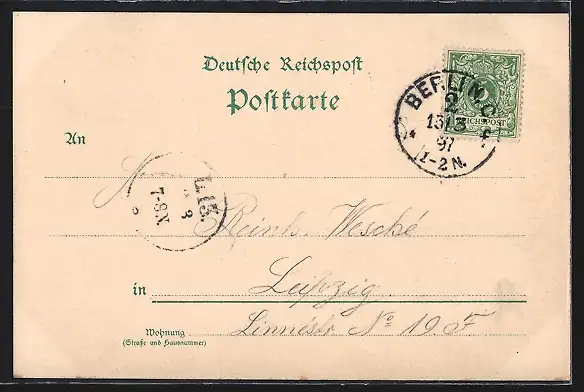 Deutsche Reichspost
Postkarte
BERLIN, C.
2
13 3
97
1-2 N.
REICHSPOST
An
L. 13.
3
7-8 N.
Reinh. Wesché
in Leipzig
Wohnung
(Straße und Hausnummer)
Linnéstr No 19 F